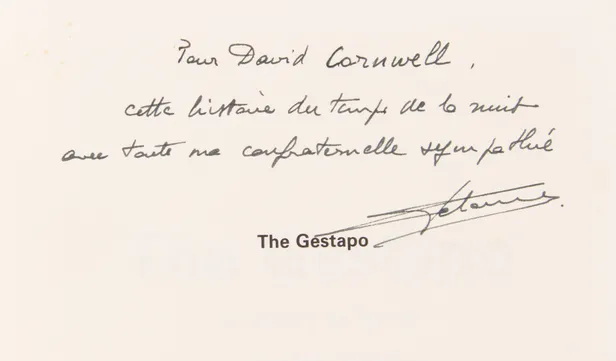 Pour David Cornwell,
cette histoire du temps de la nuit
avec toute ma confraternelle sympathie
The Gestapo